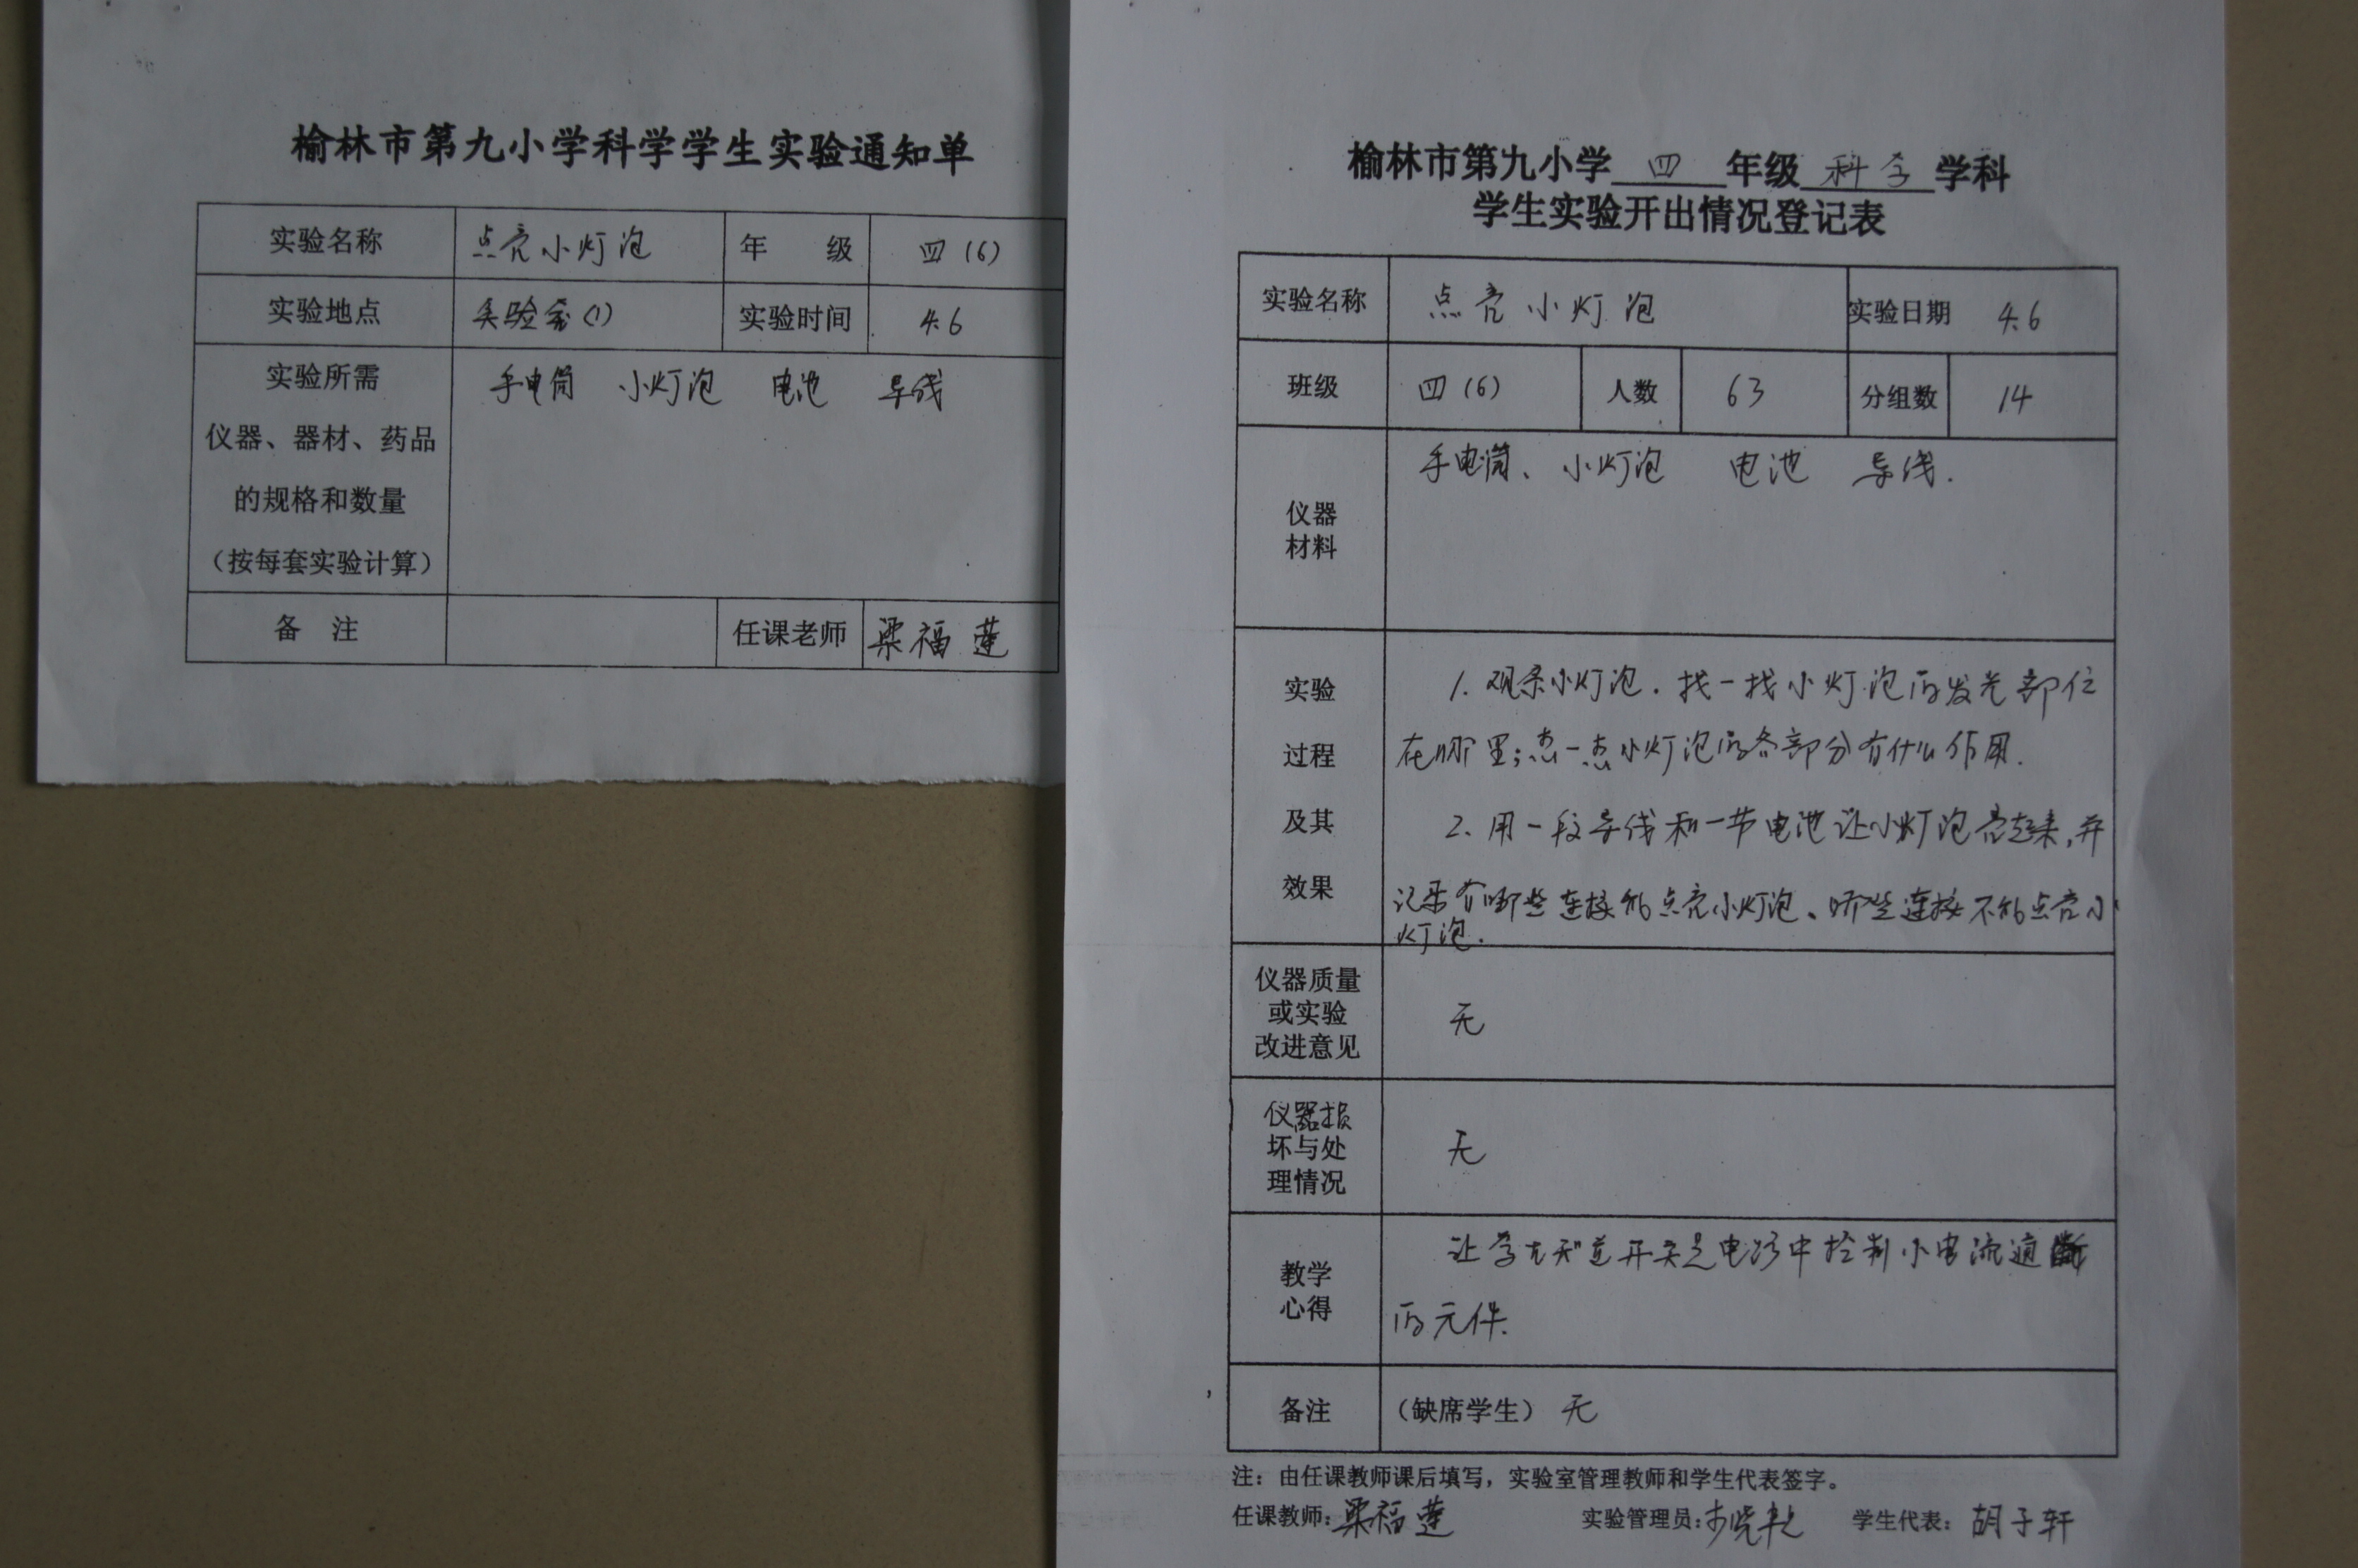 榆林市第九小学科学学生实验通知单
实验名称 点亮小灯泡 年 级 四(6)
实验地点 实验室(1) 实验时间 4.6
实验所需 手电筒 小灯泡 电池 导线
仪器、器材、药品
的规格和数量
(按每套实验计算)
备 注 任课老师 梁福莲
榆林市第九小学 四 年级 科学 学科
学生实验开出情况登记表
实验名称 点亮小灯泡 实验日期 4.6
班级 四(6) 人数 63 分组数 14
手电筒、小灯泡 电池 导线.
仪器
材料
实验
过程
及其
效果
1. 观察小灯泡.找一找小灯泡的发光部位
在哪里;想一想小灯泡的各部分有什么作用.
2. 用一段导线和一节电池让小灯泡亮起来,并
记录有哪些连接能点亮小灯泡、哪些连接不能点亮小
灯泡.
仪器质量
或实验
改进意见
无
仪器损
坏与处
理情况
无
教学
心得
让学生知道开关是电路中控制小电流通断
的元件.
备注 (缺席学生) 无
注:由任课教师课后填写,实验室管理教师和学生代表签字。
任课教师:梁福莲 实验管理员: 学生代表:胡子轩